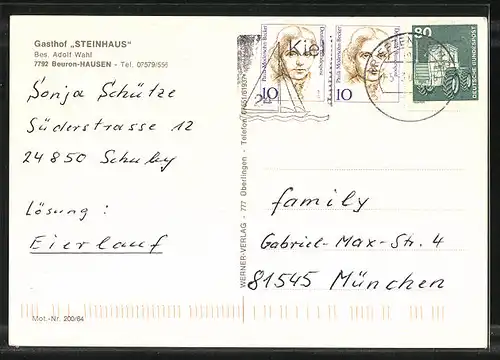 Gasthof „STEINHAUS"
Bes. Adolf Wahl
7792 Beuron-HAUSEN - Tel. 07579/556
Sonja Schütze
Süderstrasse 12
24850 Schuby
Lösung :
Eierlauf
Mot.-Nr. 200/64
WERNER-VERLAG - 777 Überlingen - Telefon
Kiel
Paula Modersohn-Becker
10
Deutsche Bundespost
Paula Modersohn-Becker
10
80
DEUTSCHE BUNDESPOST
family
Gabriel-Max-Str. 4
81545 München